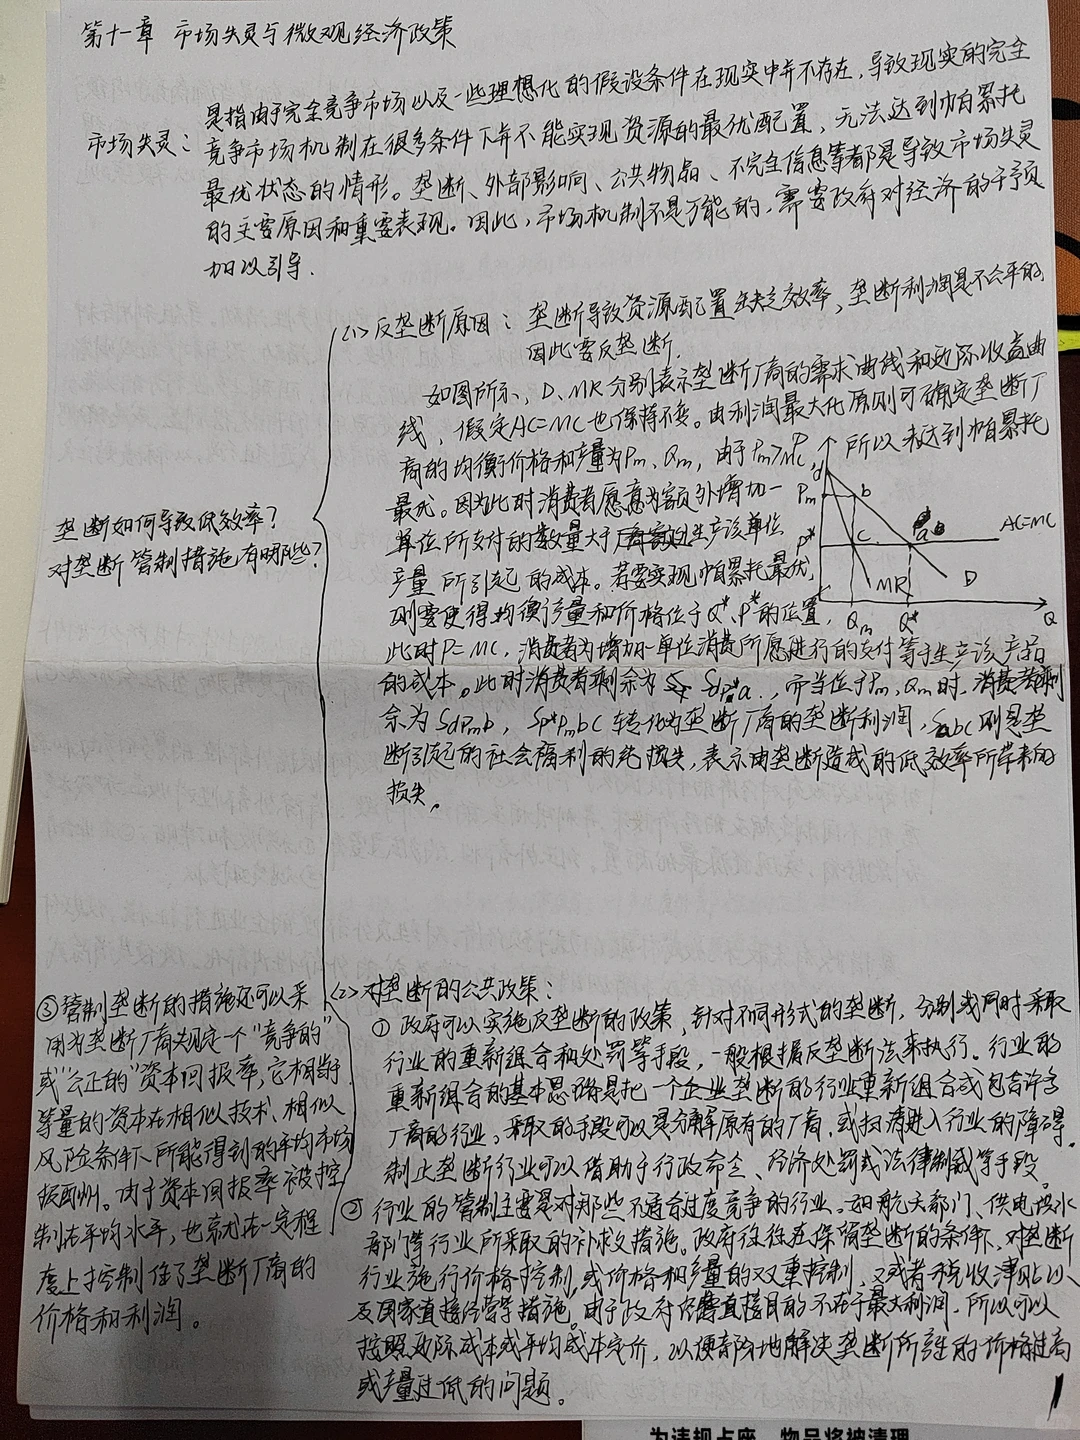 第十一章 市场失灵与微观经济政策
市场失灵：
是指由于完全竞争市场以及一些理想化的假设条件在现实中并不存在，导致现实的完全
竞争市场机制在很多条件下并不能实现资源的最优配置，无法达到帕累托
最优状态的情形。垄断、外部影响、公共物品、不完全信息等都是导致市场失灵
的主要原因和重要表现。因此，市场机制不是万能的，需要政府对经济的干预
加以引导.
垄断如何导致低效率？
对垄断管制措施有哪些？
(1) 反垄断原因：垄断导致资源配置缺乏效率，垄断利润是不公平的，
因此要反垄断.
如图所示，D、MR分别表示垄断厂商的需求曲线和边际收益曲
线，假定AC=MC也保持不变。由利润最大化原则可确定垄断厂
商的均衡价格和产量为Pm、Qm，由于Pm>MC，所以未达到帕累托
最优。因为此时消费者愿意为额外增加一
单位所支付的数量大于生产该单位
产量所引起的成本。若要实现帕累托最优，
则要使得均衡产量和价格位于Q*、P*的位置，
此时P=MC，消费者为增加一单位消费所愿进行的支付等于生产该产品
的成本。此时消费者剩余为Sdp*a.，而当位于Pm、Qm时，消费者剩
余为SdPmb，SP*PmbC转化为垄断厂商的垄断利润，Sabc则是垄
断引起的社会福利的纯损失，表示由垄断造成的低效率所带来的
损失。
P
d
Pm
b
P*
C
a
AC=MC
MR
D
Qm
Q*
Q
(2) 对垄断的公共政策：
① 政府可以实施反垄断的政策，针对不同形式的垄断，分别或同时采取
行业的重新组合和处罚等手段，一般根据反垄断法来执行。行业的
重新组合的基本思路是把一个企业垄断的行业重新组合成包含许多
厂商的行业，采取的手段可以是分解原有的厂商，或扫清进入行业的障碍。
制止垄断行业可以借助于行政命令、经济处罚或法律制裁等手段。
② 行业的管制主要是对那些不适合过度竞争的行业。如航天部门、供电供水
部门等行业所采取的补救措施。政府往往在保留垄断的条件下，对垄断
行业施行价格控制，或价格和产量的双重控制，又或者税收津贴以
及国家直接经营等措施。由于政府经营直接目的不在于最大利润，所以可以
按照边际成本或平均成本定价，以便部分地解决垄断所产生的价格过高
或产量过低的问题。
③管制垄断的措施还可以采
用为垄断厂商规定一个“竞争的”
或“公正的”资本回报率，它相当于
等量的资本在相似技术、相似
风险条件下所能得到的平均市场
报酬。由于资本回报率被控
制在平均水平，也就在一定程
度上控制住了垄断厂商的
价格和利润。
1
为违规占座，物品将被清理